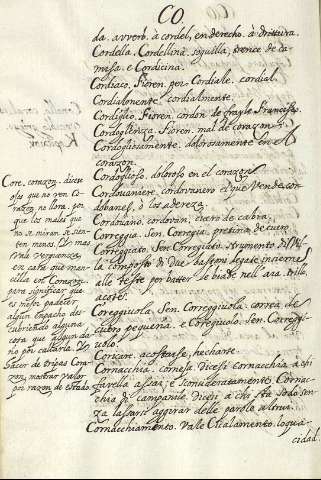 CO.
da. avverb. à cordel, en derecho. a drittura.
Cordella. Cordellina. soguilla, trence de ca-
misa. e Cordicina.
Cordiaco, Fioren. per. Cordiale. cordial.
Cordialmente cordialmente.
Cordiglio, Fioren. cordon de frayle Francisco.
Cordoglienza. Fioren. mal de corazon.
Cordogliosamente. dolorosamente en el
corazon.
Cordoglioso. doloroso en el corazon
Cordovaniere. cordovanero el que vende cor-
dobanes, ò los adereza.
Cordovano, cordovan, cuero de cabra.
Correggia. Sen. Corregia. pretina de cuero
Correggiato. Sen. Corregiato. strumento
composto di due bastoni legati insieme
alle teste per batter le biade nell ara. trillo.
acote.
Coreggiuola, Sen. Correggiuola. correa de
cuero pequeña. e Coregiuolo. Sen. Correggi-
uolo.
Coricare. acostarse, hecharse.
Cornacchia. corneja. Dicesi cornacchia a chi
favella assai, e sconsideratamento. Cornac-
chia di campanile. Dicesi a chi sta sodo sen-
za lassarsi aggirar delle parole altrui.
Cornacchiamento. Vale Cicalamento. loqua-
cidad.
Core. corazon. dicese
ojos que no ven Co-
razon no llora, por
que los males que
no se miran se sien-
ten menos. Es mas
Vale verguenza
en cara que man-
cilla en Corazon.
para significar que
es mejor padecer
algun empacho des-
cubriendo alguna
cosa que algun da-
ño por callarla.
hacer de tripas Cora-
zon, mostrar valor
por razon de estado.